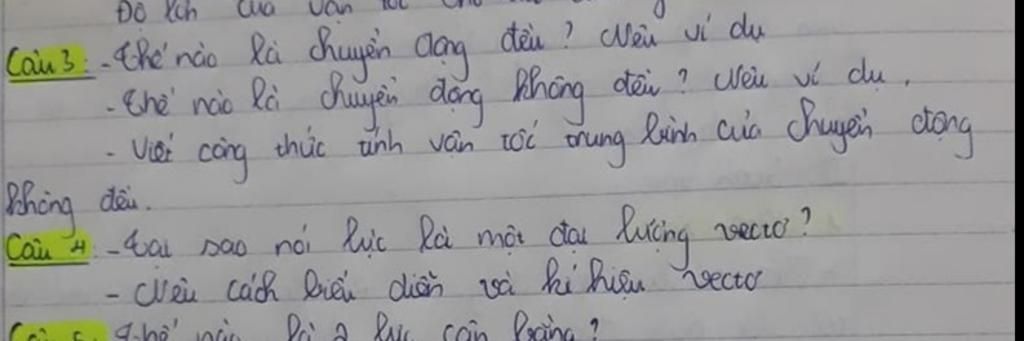 Độ lớn của vận tốc cho
Câu 3: - Thế nào là chuyển động đều? Nêu ví dụ
- Thế nào là chuyển động không đều? Nêu ví dụ.
- Viết công thức tính vận tốc trung bình của chuyển động
không đều.
Câu 4: - Tại sao nói lực là một đại lượng vectơ?
- Nêu cách biểu diễn và kí hiệu vectơ
Câu 5: Thế nào là 2 lực cân bằng?